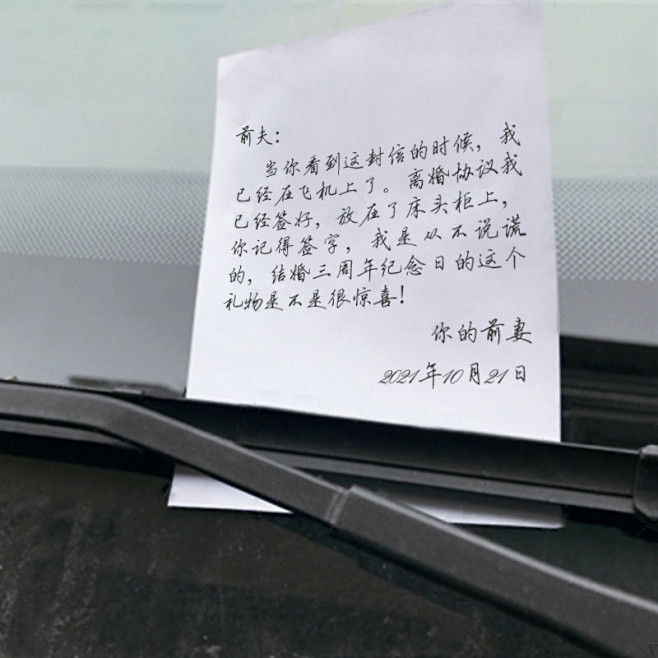 前夫：
当你看到这封信的时候，我
已经在飞机上了。离婚协议我
已经签好，放在了床头柜上，
你记得签字，我是从不说谎
的，结婚三周年纪念日的这个
礼物是不是很惊喜！
你的前妻
2021年10月21日